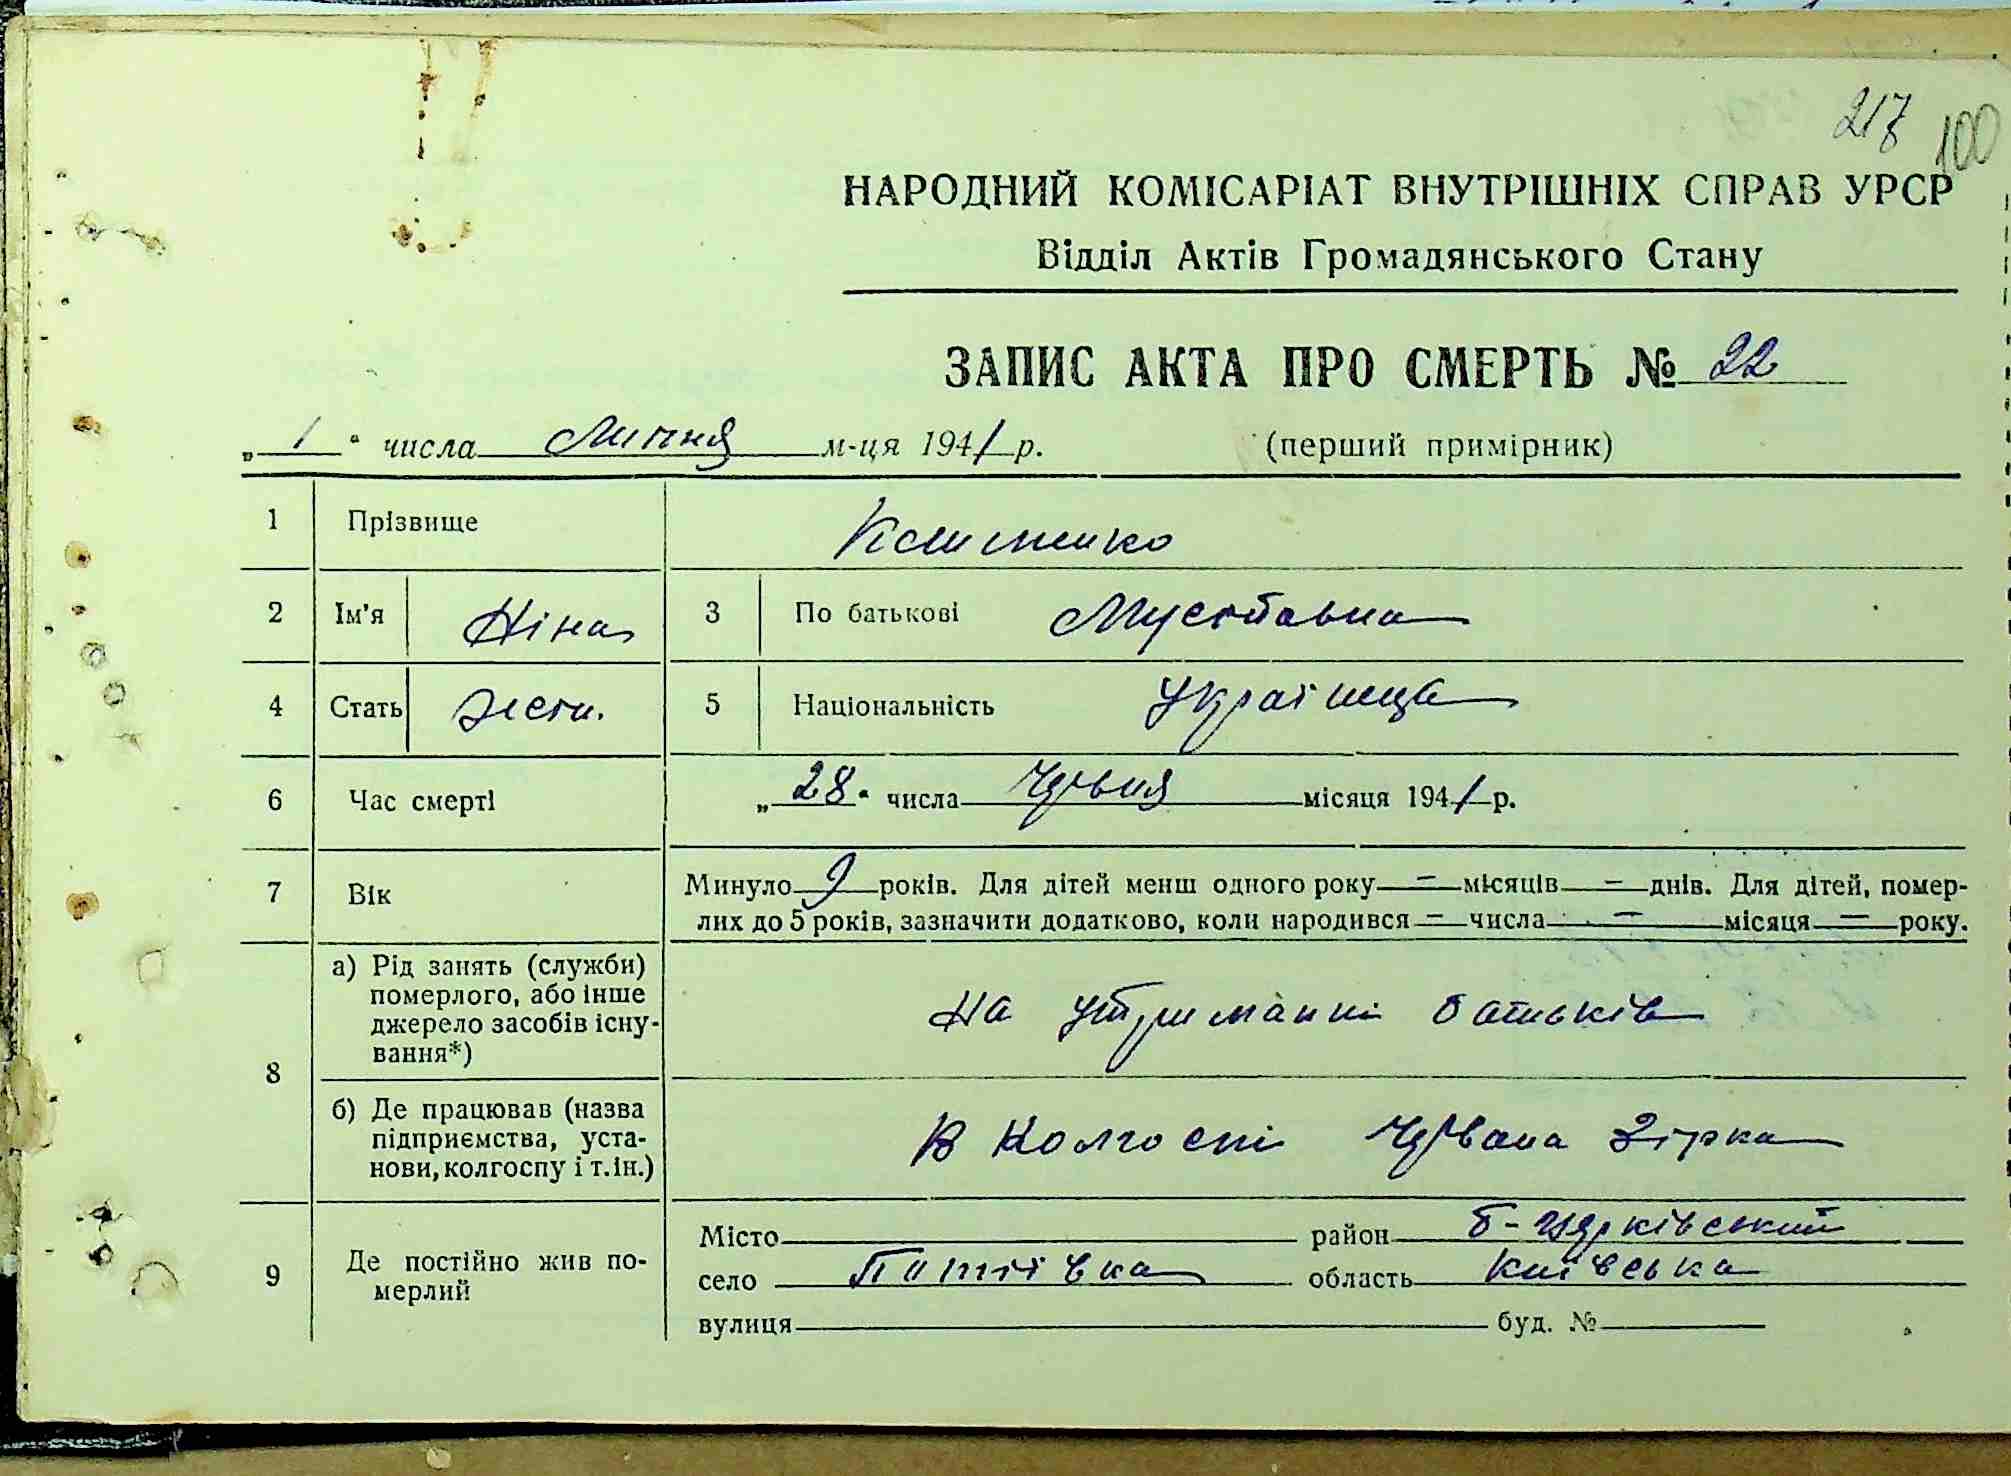 217 100
НАРОДНИЙ КОМІСАРІАТ ВНУТРІШНІХ СПРАВ УРСР
Відділ Актів Громадянського Стану
ЗАПИС АКТА ПРО СМЕРТЬ № 22
„ 1 “ числа Липня м-ця 1941 р. (перший примірник)
1 Прізвище
2 Ім'я Ніна 3 По батькові
4 Стать жен. 5 Національність Українца
6 Час смерті „28“ числа Червня місяця 1941 р.
7 Вік Минуло 9 років. Для дітей менш одного року — місяців — днів. Для дітей, помер-
лих до 5 років, зазначити додатково, коли народився — числа — місяця — року.
8 а) Рід занять (служби)
померлого, або інше
джерело засобів існу-
вання*)
На утриманні батьків
б) Де працював (назва
підприємства, уста-
нови, колгоспу і т.ін.)
В Колгоспі Червона Зірка
9 Де постійно жив по-
мерлий
Місто район Б-церківський
село область Київська
вулиця буд. №